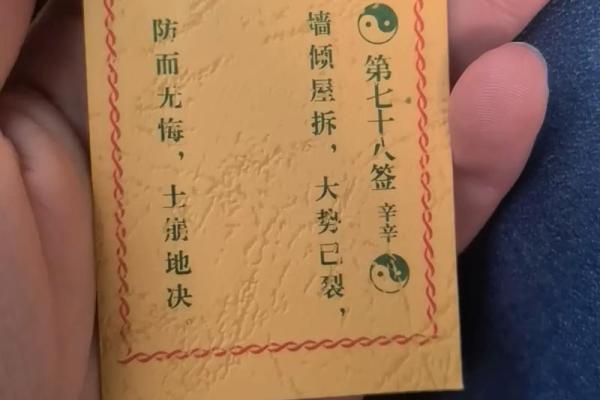 第七十八签 辛辛
墙倾屋拆，大势已裂，
防而无悔，土崩地决。